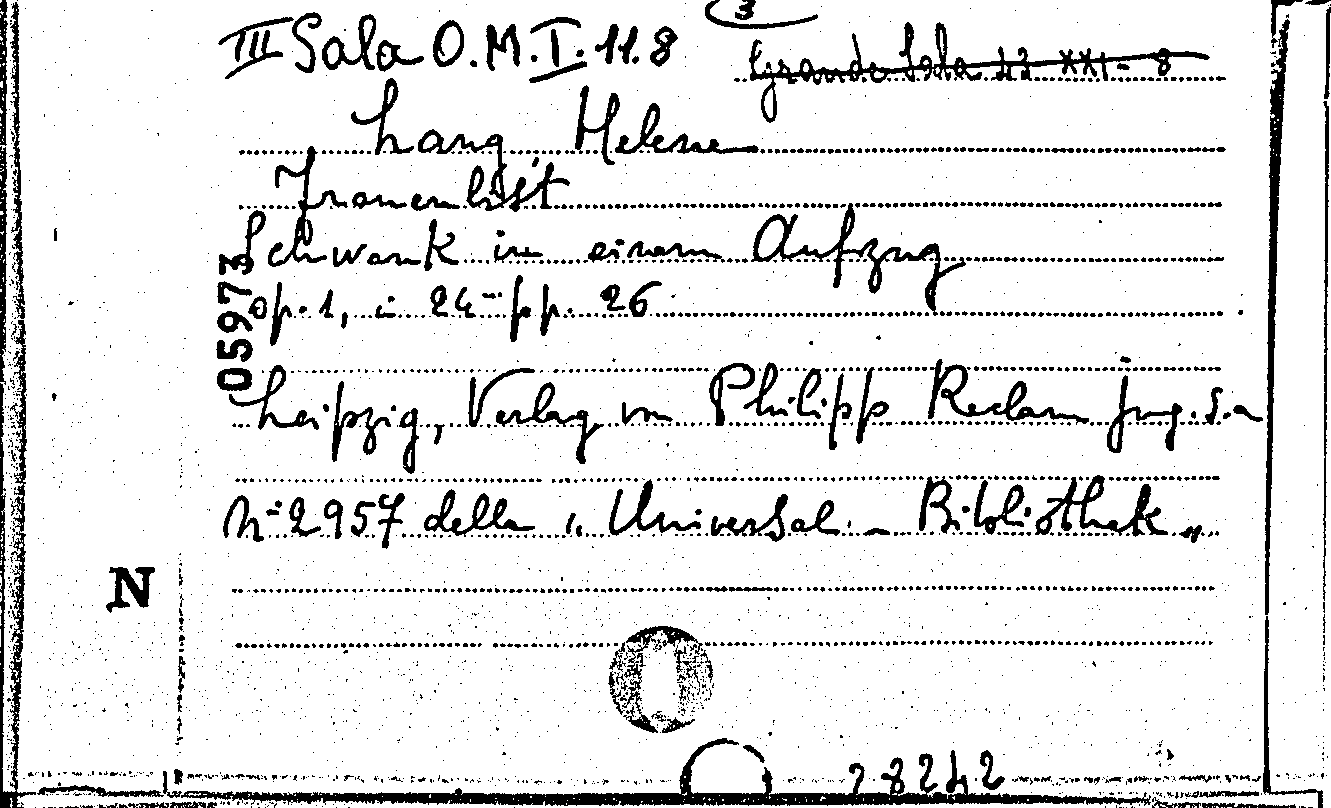 3
III Sala O.M.I.11.8
Grande Sala 43 XXI-8
Lang, Helene
Frauenlist
Schwank in einem Aufzug
05973
op. 1, in 24- pp. 26
Leipzig, Verlag von Philipp Reclam jung. s.a
N° 2957 della "Universal-Bibliothek"
N
28242